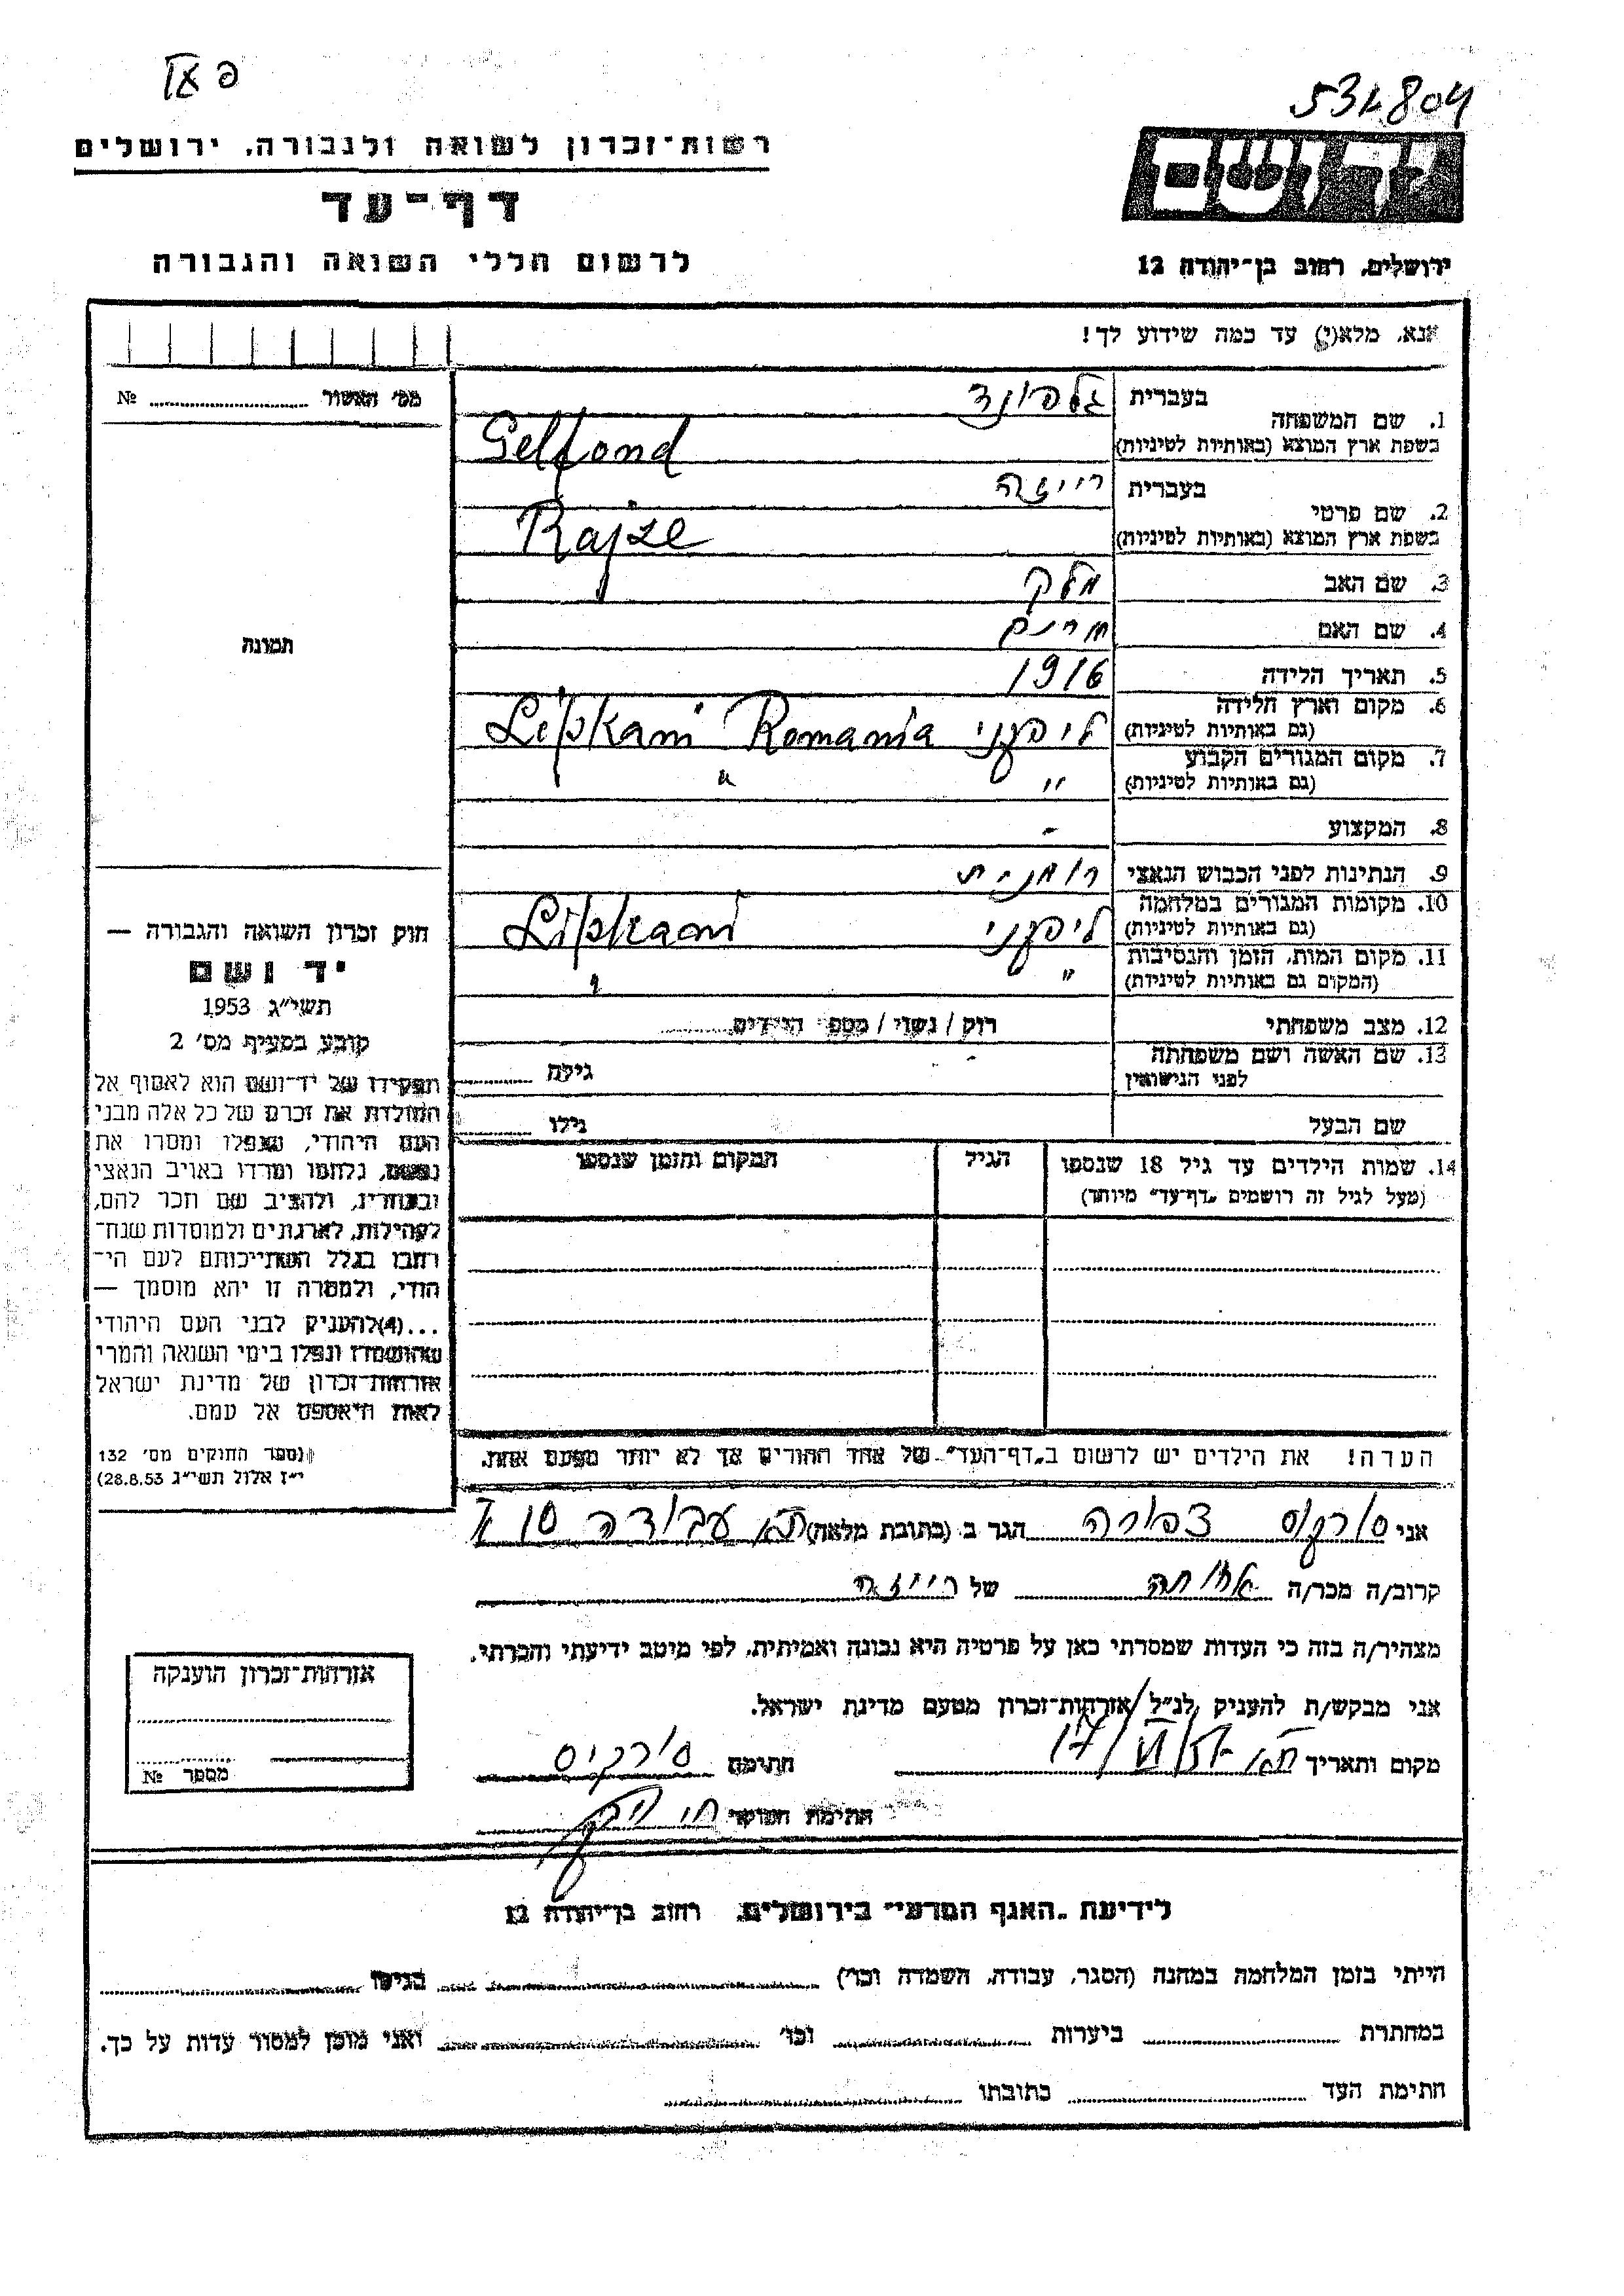 534804
רשות־זכרון לשואה ולגבורה, ירושלים
דף־עד
לרשום חללי השואה והגבורה
יד ושם
ירושלים, רחוב בן־יהודה 12
אנא, מלא(י) עד כמה שידוע לך!
מס׳ האשור № 
1. שם המשפחה
בעברית גלפונד
בשפת ארץ המוצא (באותיות לטיניות) Gelfond
2. שם פרטי
בעברית רייזה
בשפת ארץ המוצא (באותיות לטיניות) Rajze
3. שם האב
4. שם האם מרים
5. תאריך הלידה 1916
6. מקום וארץ הלידה
(גם באותיות לטיניות) ליפקני Lipkani Romania
7. מקום המגורים הקבוע
(גם באותיות לטיניות) " "
8. המקצוע -
9. הנתינות לפני הכבוש הנאצי רומנית
10. מקומות המגורים במלחמה
(גם באותיות לטיניות) ליפקני Lipkani
11. מקום המות, הזמן והנסיבות
(המקום גם באותיות לטיניות) " "
12. מצב משפחתי רוק / נשוי / מספר הילדים
13. שם האשה ושם משפחתה
לפני הנישואין - גילה
שם הבעל גילו
14. שמות הילדים עד גיל 18 שנספו הגיל המקום והזמן שנספו
(מעל לגיל זה רושמים „דף־עד” מיוחד)
הערה! את הילדים יש לרשום ב„דף־העד” של אחד ההורים אך לא יותר מפעם אחת.
תמונה
חוק זכרון השואה והגבורה —
יד ושם
תשי״ג 1953
קובע בסעיף מס׳ 2
תפקידו של יד־ושם הוא לאסוף אל
המולדת את זכרם של כל אלה מבני
העם היהודי, שנפלו ומסרו את
נפשם, נלחמו ומרדו באויב הנאצי
ובעוזריו, ולהציב שם וזכר להם,
לקהילות, לארגונים ולמוסדות שנח־
רבו בגלל השתייכותם לעם הי־
הודי, ולמטרה זו יהא מוסמך —
...(4) להעניק לבני העם היהודי
שהושמדו ונפלו בימי השואה והמרי
אזרחות־זכרון של מדינת ישראל
לאות היאספם אל עמם.
(ספר החוקים מס׳ 132
י״ז אלול תשי״ג 28.8.53)
אני סורקיס צפורה הגר ב (כתובת מלאה) ת״א עבודה 10
קרוב/ה מכר/ה אחותה של רייזה
מצהיר/ה בזה כי העדות שמסרתי כאן על פרטיה היא נכונה ואמיתית, לפי מיטב ידיעתי והכרתי.
אני מבקש/ת להעניק לנ״ל אזרחות־זכרון מטעם מדינת ישראל.
מקום ותאריך ת״א חתימה סורקיס
חתימת הפוקד
אזרחות־זכרון הוענקה
מספר № 
לידיעת „האגף המדעי” בירושלים, רחוב בן־יהודה 12
הייתי בזמן המלחמה במחנה (הסגר, עבודה, השמדה וכו׳) בגיטו
במחתרת ביערות וכו׳ ואני מוכן למסור עדות על כך.
חתימת העד כתובתו